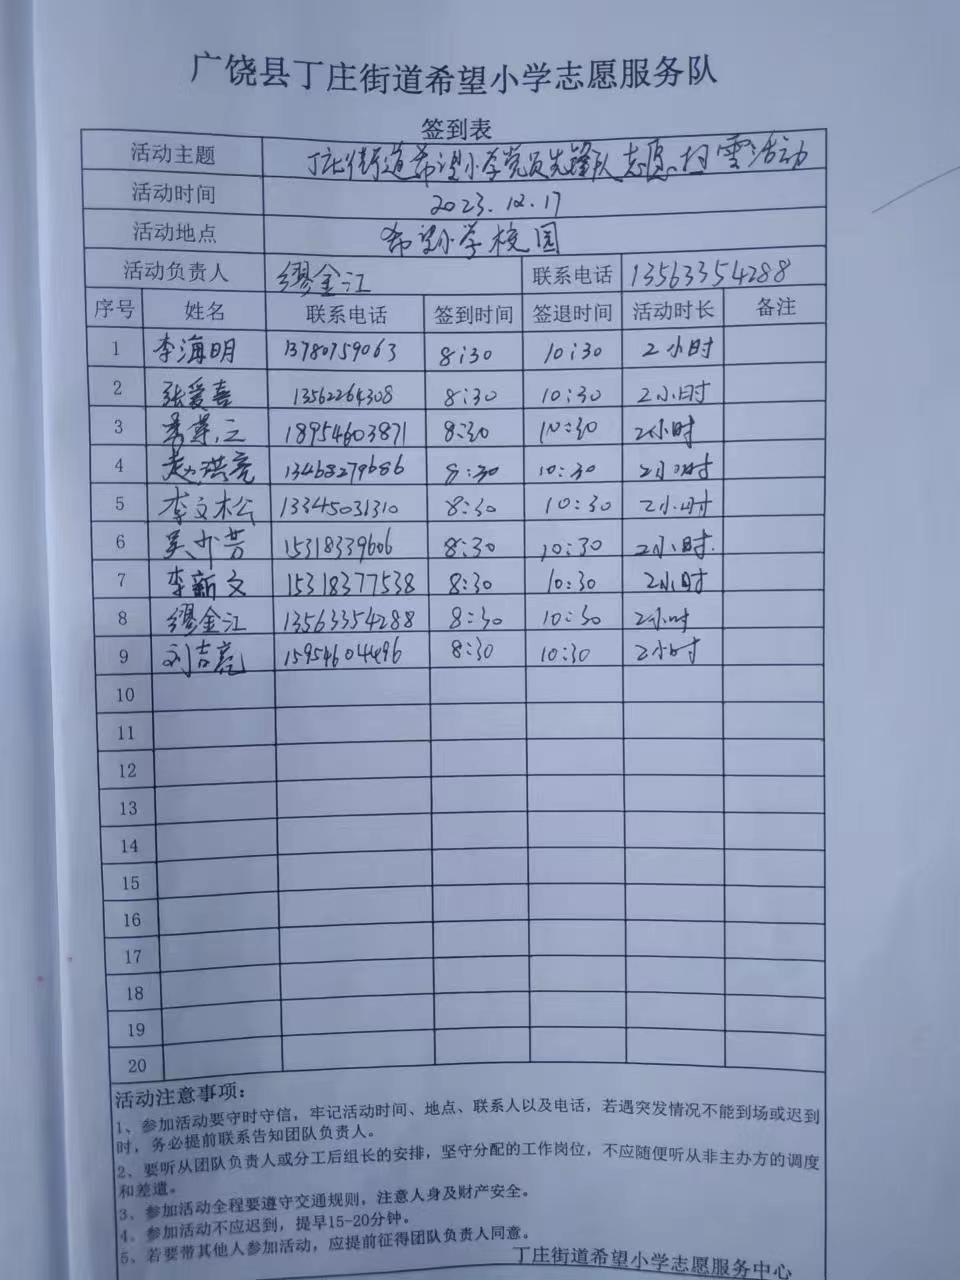 广饶县丁庄街道希望小学志愿服务队
签到表
活动主题 丁庄街道希望小学党员先锋队志愿扫雪活动
活动时间 2023.12.17
活动地点 希望小学校园
活动负责人 缪金江 联系电话 13563354288
序号 姓名 联系电话 签到时间 签退时间 活动时长 备注
1 李海明 13780759063 8:30 10:30 2小时
2 张爱喜 13562264308 8:30 10:30 2小时
3 18954603871 8:30 10:30 2小时
4 赵洪亮 13468279686 8:30 10:30 2小时
5 李文松 13345031310 8:30 10:30 2小时
6 15318339606 8:30 10:30 2小时
7 李新文 15318377538 8:30 10:30 2小时
8 缪金江 13563354288 8:30 10:30 2小时
9 刘吉亮 15954604496 8:30 10:30 2小时
10
11
12
13
14
15
16
17
18
19
20
活动注意事项：
1、参加活动要守时守信，牢记活动时间、地点、联系人以及电话，若遇突发情况不能到场或迟到
时，务必提前联系告知团队负责人。
2、要听从团队负责人或分工后组长的安排，坚守分配的工作岗位，不应随便听从非主办方的调度
和差遣。
3、参加活动全程要遵守交通规则，注意人身及财产安全。
4、参加活动不应迟到，提早15-20分钟。
5、若要带其他人参加活动，应提前征得团队负责人同意。
丁庄街道希望小学志愿服务中心